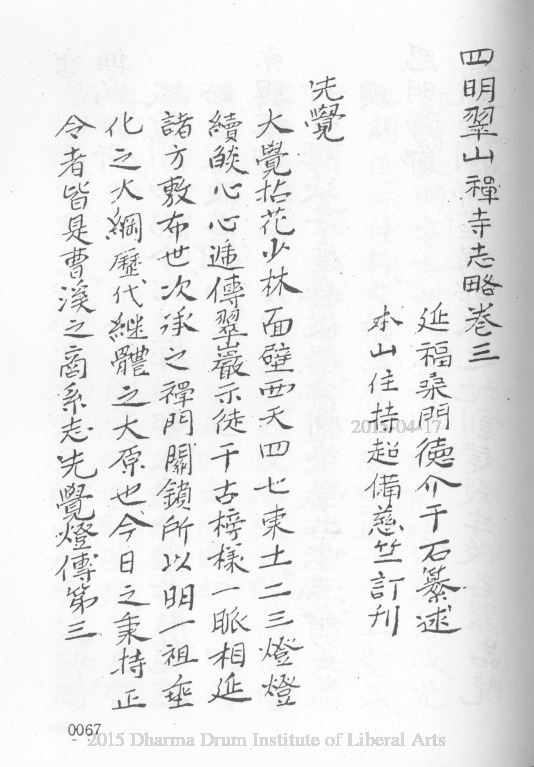 四明翠山禪寺志略卷三
延福桑門德介千石纂述
本山住持超備慈竺訂刊
先覺
大覺拈花少林面壁西天四七東土二三燈燈
續燄心心逓傳翠巖示徒千古榜樣一脈相延
諸方敷布世次承之禪門關鎖所以明一祖垂
化之大綱歷代繼體之大原也今日之秉持正
令者皆是曹溪之裔系志先覺燈傳第三
2015-04-17
0067
2015 Dharma Drum Institute of Liberal Arts